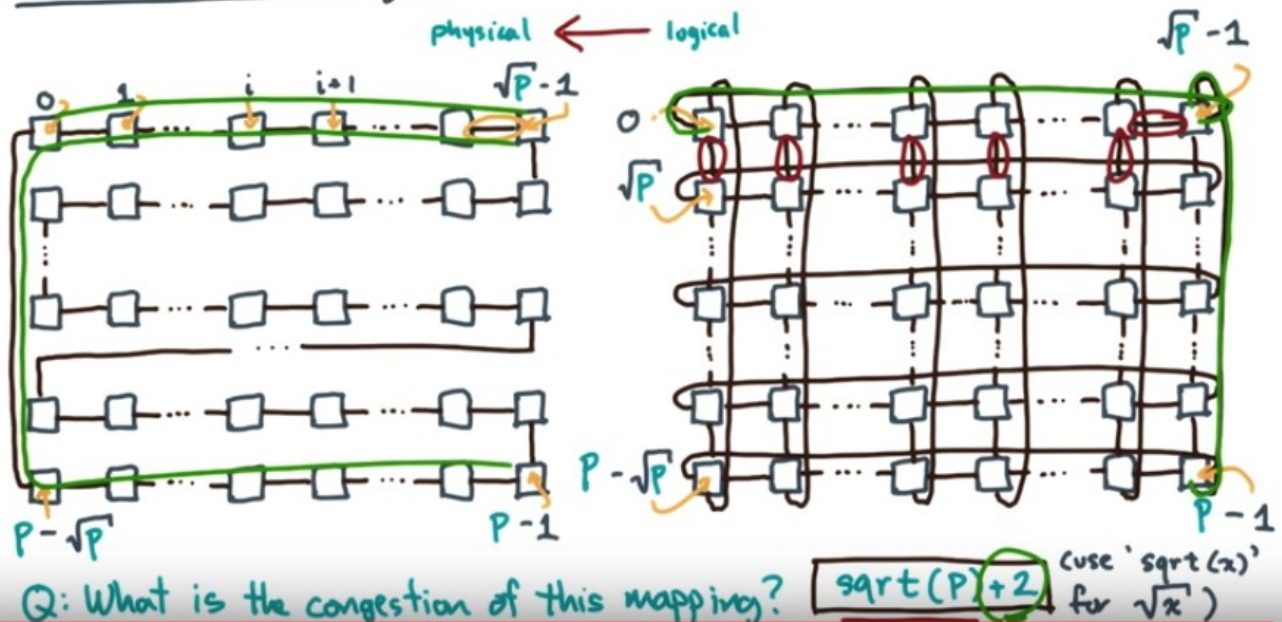 physical ← logical
0 1 i i+1 √P - 1
√P - 1
0
√P
P - √P
P - 1
P - √P
P - 1
Q: What is the congestion of this mapping? sqrt(P) + 2 (use 'sqrt(x)'
for √x)